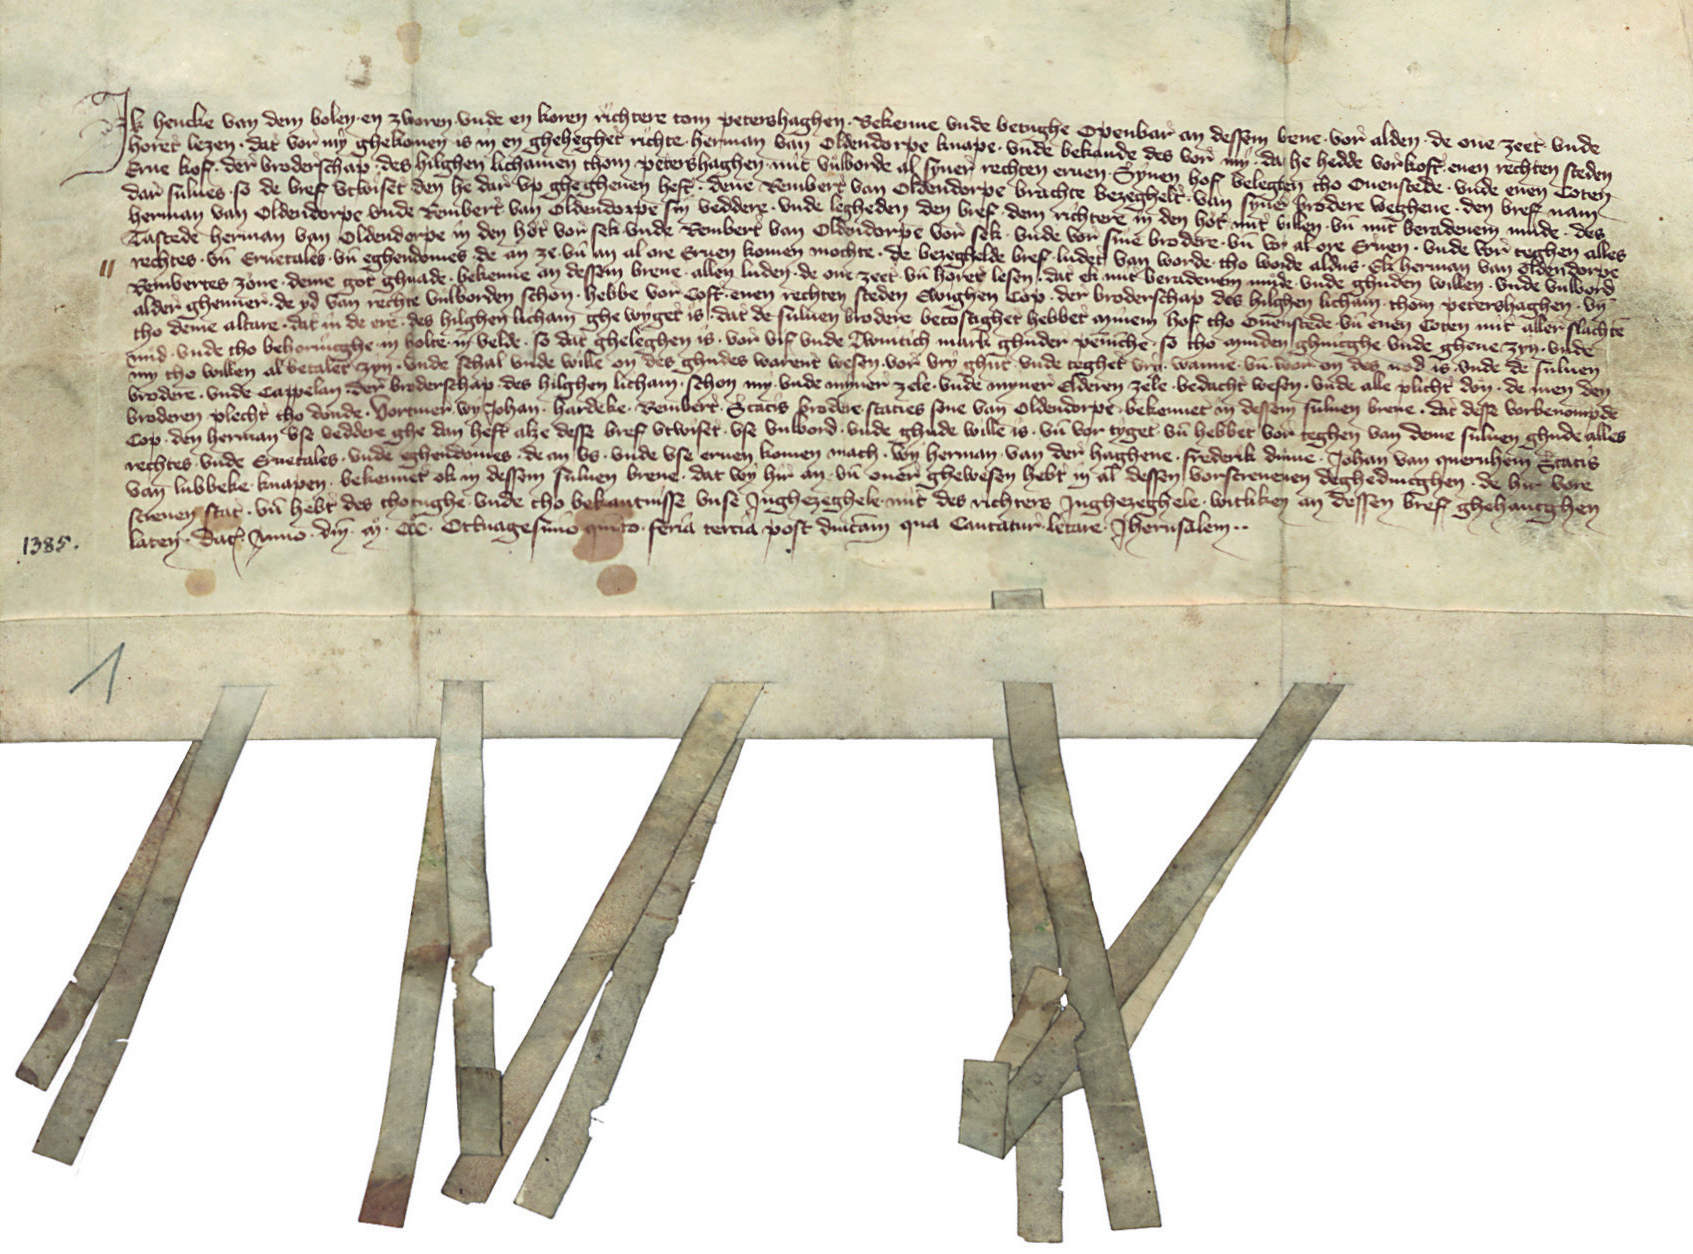 Ik hencke van dem bolen en zworen vnde en koren richtere tom petershaghen · Bekenne vnde betughe Openbar an dessem breue · vor alden · de one zeet vnde
horet lezen · dat vor my ghekomen is in en gheheghet richte · herman van Oldendorpe knape · vnde bekande des vor my · dat he hedde vorkoft · enen rechten steden
Erue kof · der broderschap · des hilghen lichamen thom petershaghen · mit vulborde al syner rechten eruen · Synen hof belegten tho Ouenstede · vnde enen Coten
dar sulues · so de bref vtwiset den he dar vp ghegheuen heft · dene Rembert van Oldendorpe brachte bezeghelt · van syner brodere weghene · den bref nam
herman van Oldendorpe vnde Rembert van Oldendorpe sin veddere · vnde legheden den bref · dem richtere in den hot mit willen · vn mit beradenem mude · des
Tastede herman van Oldendorpe in den hot vor sek vnde Rembert van Oldendorpe vor sek · vnde vor sine brodere · vn vor al ore Eruen · vnde vor teghen alles
rechtes · vn Eruetales · vn eghendomes de an ze · vn an al ore Eruen komen mochte · de bezeghelde bref ludet van worde · tho worde aldus · Ek herman van Oldendorpe
Rembertes zone · deme got ghnade · bekenne an dessem breue · allen luden · de one zeet · vn horet lesen · dat ek mit beradenem mude · vnde ghuden willen · vnde vulbord
alder ghenner · de yd van rechte vulborden scholn · hebbe vor Coft · enen rechten steden Ewighen Cop · der broderschap des hilghen licham · thom petershaghen · vn
tho deme altare · dat in de ere · des hilghen licham ghe wyget is · dat de suluen brodere becostighet hebbet mynem hof tho Ouenstede · vn enen Coten mit aller slachte
nud · vnde tho behoringhe in holte in velde · so dat gheleghen is · vor vif vnde Twintich mark ghuder peninche · so tho mynden ghinghe vnde gheue zyn · vnde
my tho willen al betalet zyn · vnde schal vnde wille on des ghudes warent wesen · vor vry ghut · vnde teghet vry · wanne · vn wor on des nod is · vnde de suluen
brodere · vnde Cappelan · der broderschap · des hilghen licham · scholn my · vnde myner zele · vnde myner Elderen zele · bedacht wesen · vnde alle plicht don · de men den
broderen plecht tho donde · Vortmer wy Johan · hardeke · Rembert · Statis brodere · staties sone van Oldendorpe · bekennet in dessem suluen breue · dat desse vorbenompde
Cop · den herman vse veddere ghe dan heft alze desse bref vtwiset · vse vulbord · vnde ghude wille is · vn vor tyget vn hebbet vor teghen van deme suluen ghude alles
rechtes · vnde Eruetales · vnde eghendomes · de an vs · vnde vse eruen komen mach · Wy herman · van der haghene · frederik dume · Johan van quernhem Statis
van lubbeke · knapen · bekennet ok in dessem suluen breue · dat wy hir an · vn ouer ghewesen hebt in al dessen vorscreuenen deghedincghen · de hir vore
screuen stat · vn hebt des thotughe vnde tho bekantnisse vnse Inghezeghele mit des richters Inghezeghele · witliken an dessen bref ghehancghen
laten · Dat Anno · dni · M · CCC · Octuagesimo quinto · feria tercia post dnicam qua Cantatur letare · Jherusalem ··
1385.
1